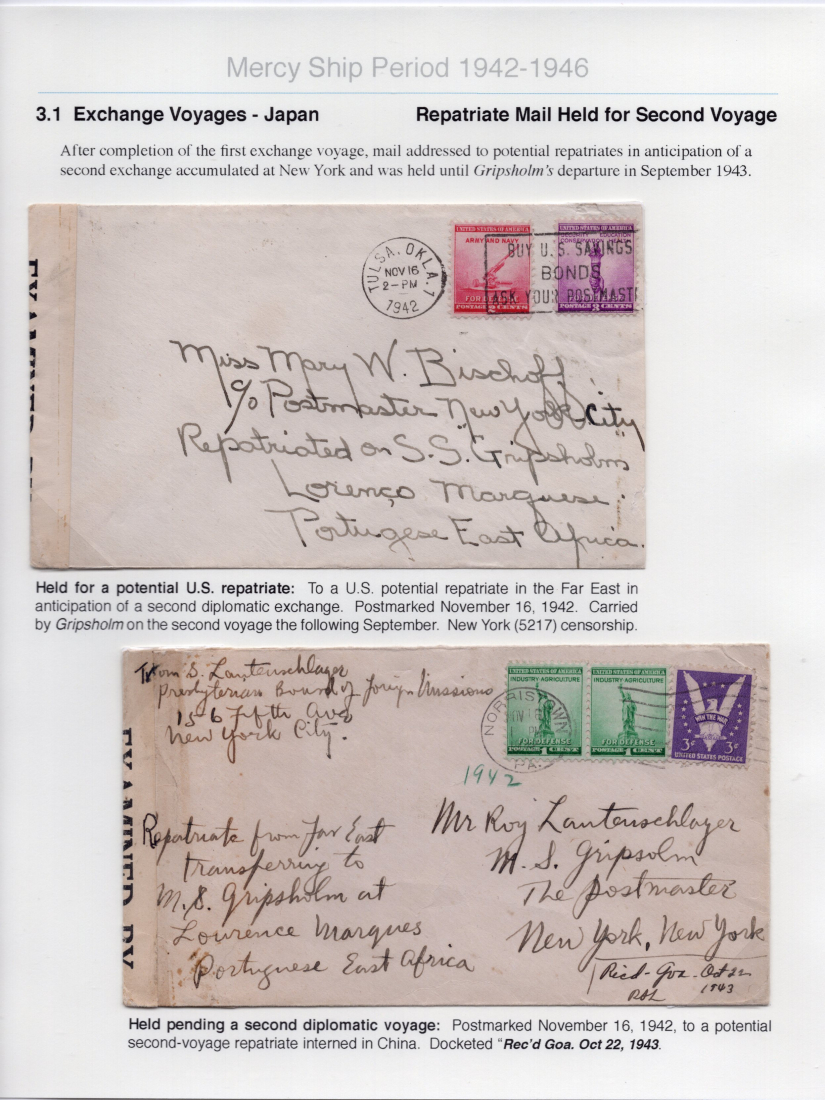 Mercy Ship Period 1942-1946
3.1 Exchange Voyages - Japan
Repatriate Mail Held for Second Voyage
After completion of the first exchange voyage, mail addressed to potential repatriates in anticipation of a
second exchange accumulated at New York and was held until Gripsholm's departure in September 1943.
TULSA, OKLA. 1
NOV 16
2-PM
1942
UNITED STATES OF AMERICA
ARMY AND NAVY
FOR DEFENSE
POSTAGE 2 CENTS
UNITED STATES OF AMERICA
POSTAGE 3 CENTS
BUY U.S. SAVINGS
BONDS
ASK YOUR POSTMAST
Miss Mary W. Bischoff
c/o Postmaster New York City
Repatriated on S.S. Gripsholm
Lorenço Marquese
Portugese East Africa.
Held for a potential U.S. repatriate: To a U.S. potential repatriate in the Far East in
anticipation of a second diplomatic exchange. Postmarked November 16, 1942. Carried
by Gripsholm on the second voyage the following September. New York (5217) censorship.
From S. Lautenschlager
Presbyterian Board of Foreign Missions
156 Fifth Ave
New York City.
UNITED STATES OF AMERICA
INDUSTRY AGRICULTURE
FOR DEFENSE
POSTAGE 1 CENT
UNITED STATES OF AMERICA
INDUSTRY AGRICULTURE
FOR DEFENSE
POSTAGE 1 CENT
WIN THE WAR
3¢ 3¢
UNITED STATES POSTAGE
PA.
1942
EXAMINED BY
Repatriate from Far East
transferring to
M.S. Gripsholm at
Lourence Marques
Portuguese East Africa
Mr Roy Lautenschlager
M.S. Gripsolm
The Postmaster
New York, New York
Rec'd - Goa - Oct 22
1943
Held pending a second diplomatic voyage: Postmarked November 16, 1942, to a potential
second-voyage repatriate interned in China. Docketed “Rec'd Goa. Oct 22, 1943.